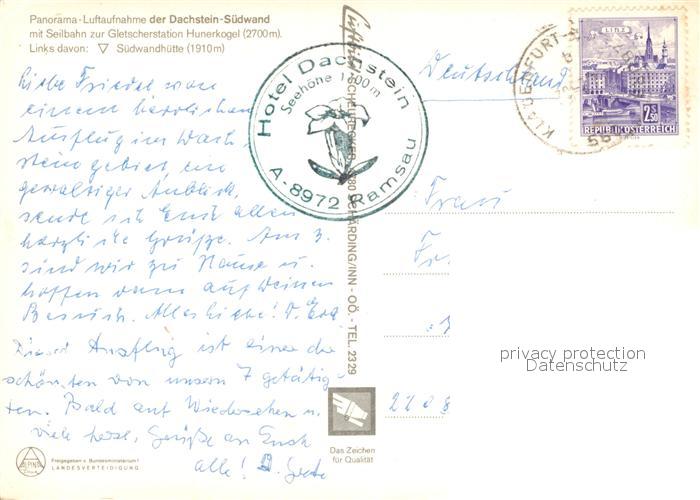 Panorama-Luftaufnahme der Dachstein-Südwand
mit Seilbahn zur Gletscherstation Hunerkogel (2700m).
Links davon: ▽ Südwandhütte (1910m)
Liebe Friedel von
einem herrlichen
Ausflug im Dach
steingebiet, ein
gewaltiger Anblick,
sende ich Euch allen
herzliche Grüße. Am 3.
sind wir zu Hause u.
hoffen dann auf Deinen
Besuch. Alles Liebe!
Dieser Ausflug ist einer der
schönsten von unsern 7 getätig-
ten. Bald auf Wiedersehen u.
viele herzl. Grüße an Euch
alle! Grete
Hotel Dachstein
Seehöhe 1100m
A-8972 Ramsau
SCHÄRDING/INN - OÖ. - TEL. 2329
Deutschland
KLAGENFURT
LINZ
2S50
REPUBLIK ÖSTERREICH
Frau
Fr.
privacy protection
Datenschutz
Das Zeichen
für Qualität
ALPINE
Freigegeben v. Bundesministerium f.
LANDESVERTEIDIGUNG